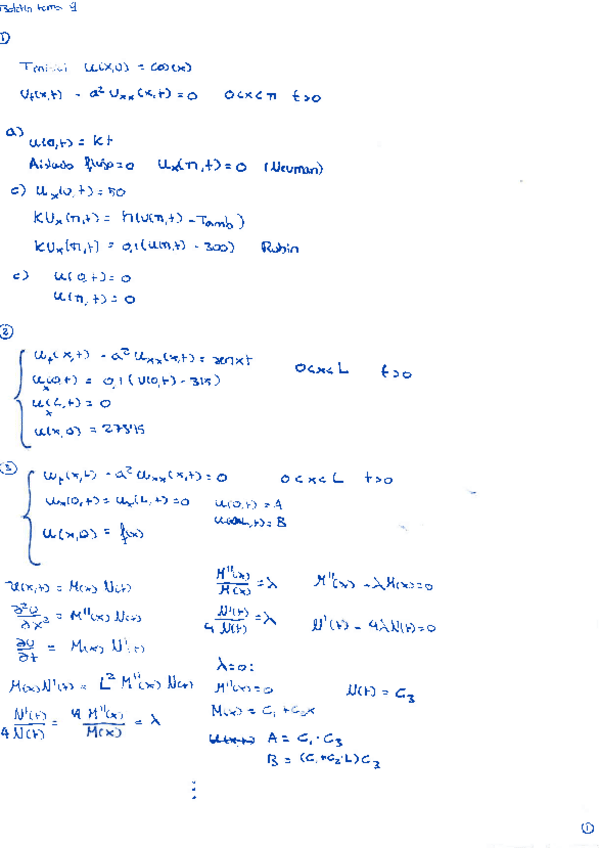 Boletín tema 9
①
T inicial u(x,0) = cos(x)
Ut(x,t) - a² Uxx(x,t) = 0 0<x<π t>0
a)
u(0,t) = kt
Aislado flujo=0 Ux(π,t)=0 (Neuman)
c) Ux(0,t) = 50
KUx(π,t) = h(u(π,t) - Tamb)
KUx(π,t) = 0,1(u(π,t) - 300) Robin
c) u(0,t) = 0
u(π,t) = 0
②
Ut(x,t) - a² Uxx(x,t) = xt 0<x<L t>0
Ux(0,t) = 0,1(U(0,t) - 315)
Ux(L,t) = 0
u(x,0) = 273'15
③
Ut(x,t) - a² Uxx(x,t) = 0 0<x<L t>0
Ux(0,t) = Ux(L,t) = 0 u(0,t) = A
u(L,t) = B
u(x,0) = f(x)
u(x,t) = M(x) N(t)
∂²U/∂x² = M''(x) N(t)
∂U/∂t = M(x) N'(t)
M(x)N'(t) = L² M''(x) N(t)
N'(t)/4N(t) = 4 M''(x)/M(x) = λ
M''(x)/M(x) = λ M''(x) - λM(x) = 0
N'(t)/4N(t) = λ N'(t) - 4λN(t) = 0
λ=0:
M''(x) = 0 N(t) = C₃
M(x) = C₁ + C₂x
A = C₁·C₃
B = (C₁+C₂·L)C₃
⋮
①